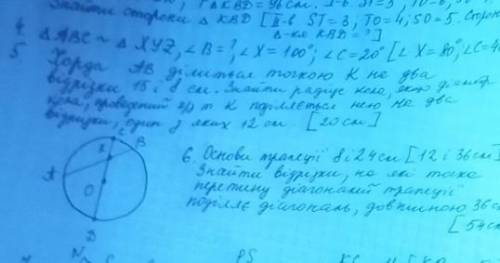 Знайти сторони △ KBD [II-в. ST=3, TO=4, SO=5. Сторони
△-ка KBD = ?]
4. △ABC ~ △XYZ, ∠B=?, ∠X=100°, ∠C=20° [∠X=80°, ∠C=4
5. Хорда AB ділиться точкою K на два
відрізки 15 і 8 см. Знайти радіус кола, якщо діаметр
кола, проведений ч/з т K поділяється нею на два
відрізки, один з яких 12 см. [20 см]
C
B
K
A
O
D
6. Основи трапеції 8 і 24 см [12 і 36 см]
Знайти відрізки, на які точка
перетину діагоналей трапеції
поділяє діагональ, довжиною 36 см
[54 см
N
PS